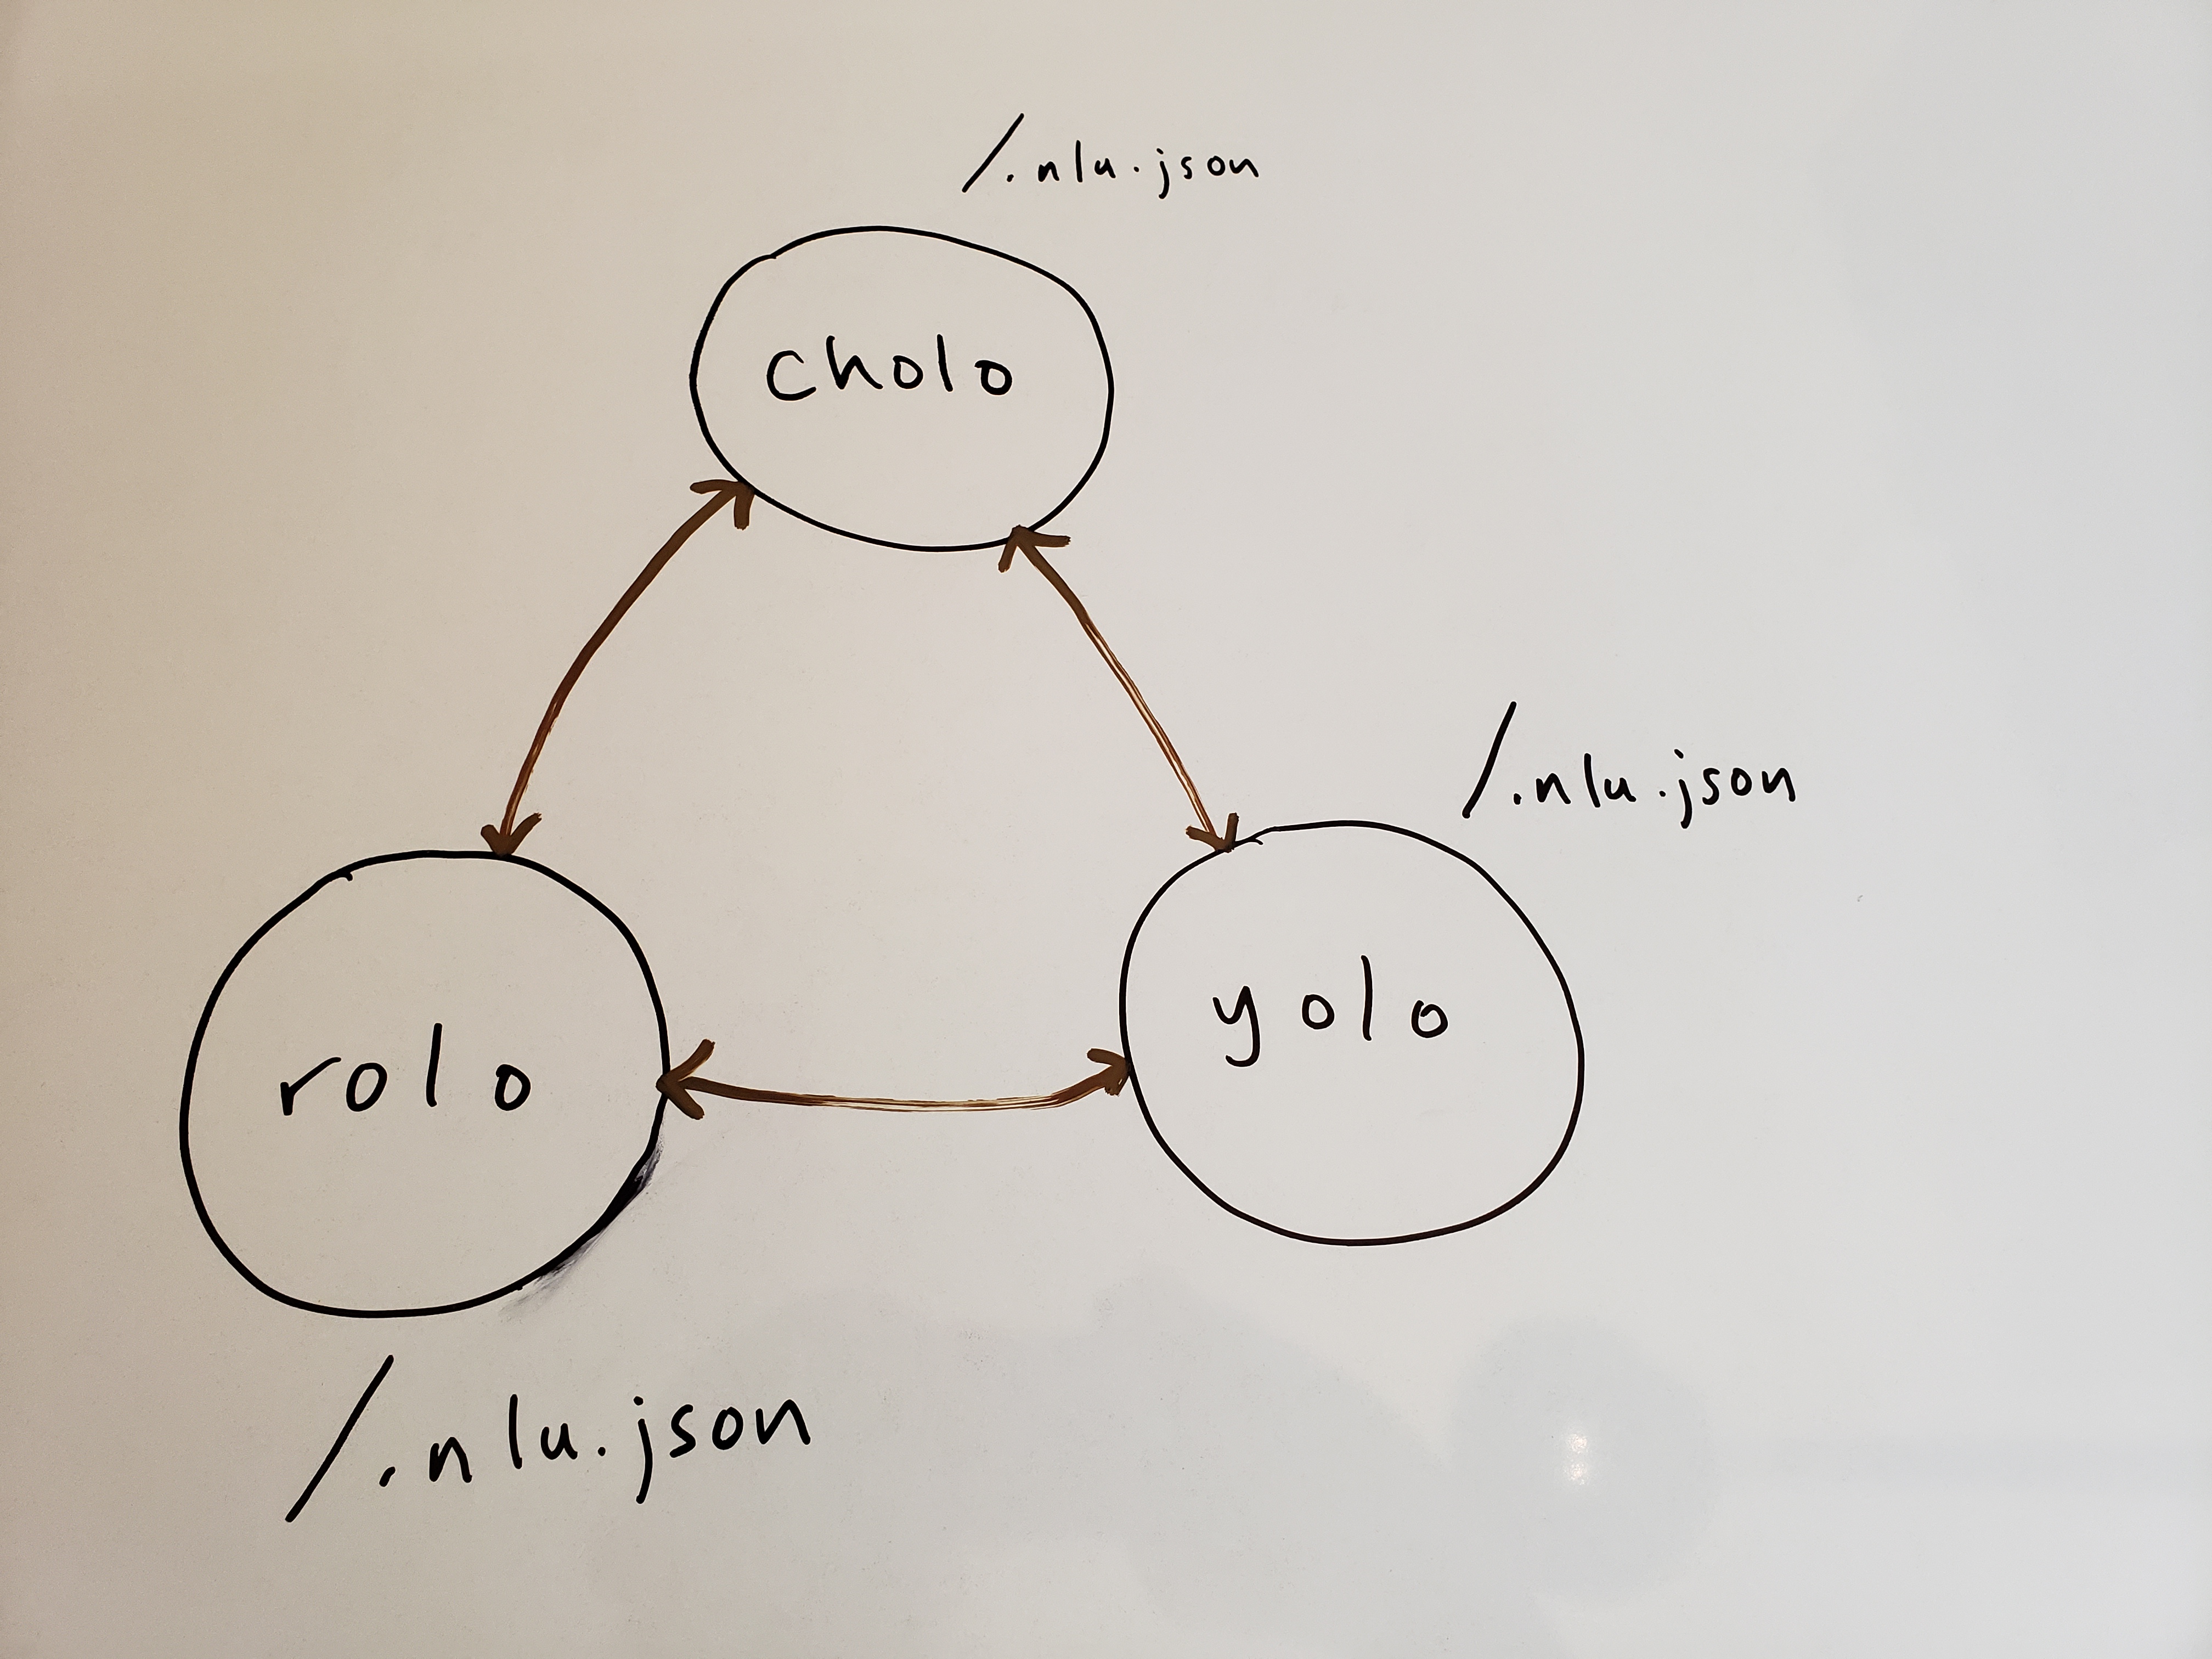 /.nlu.json
cholo
/.nlu.json
yolo
rolo
/.nlu.json